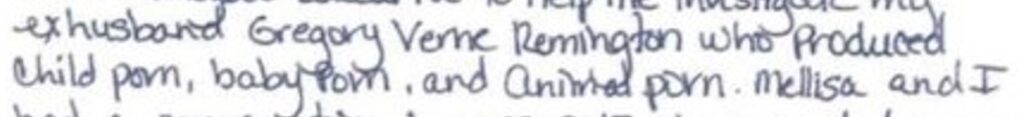 to help me investigate my
exhusband Gregory Verne Remington who produced
Child porn, baby Porn, and animal porn. Mellisa and I
had a